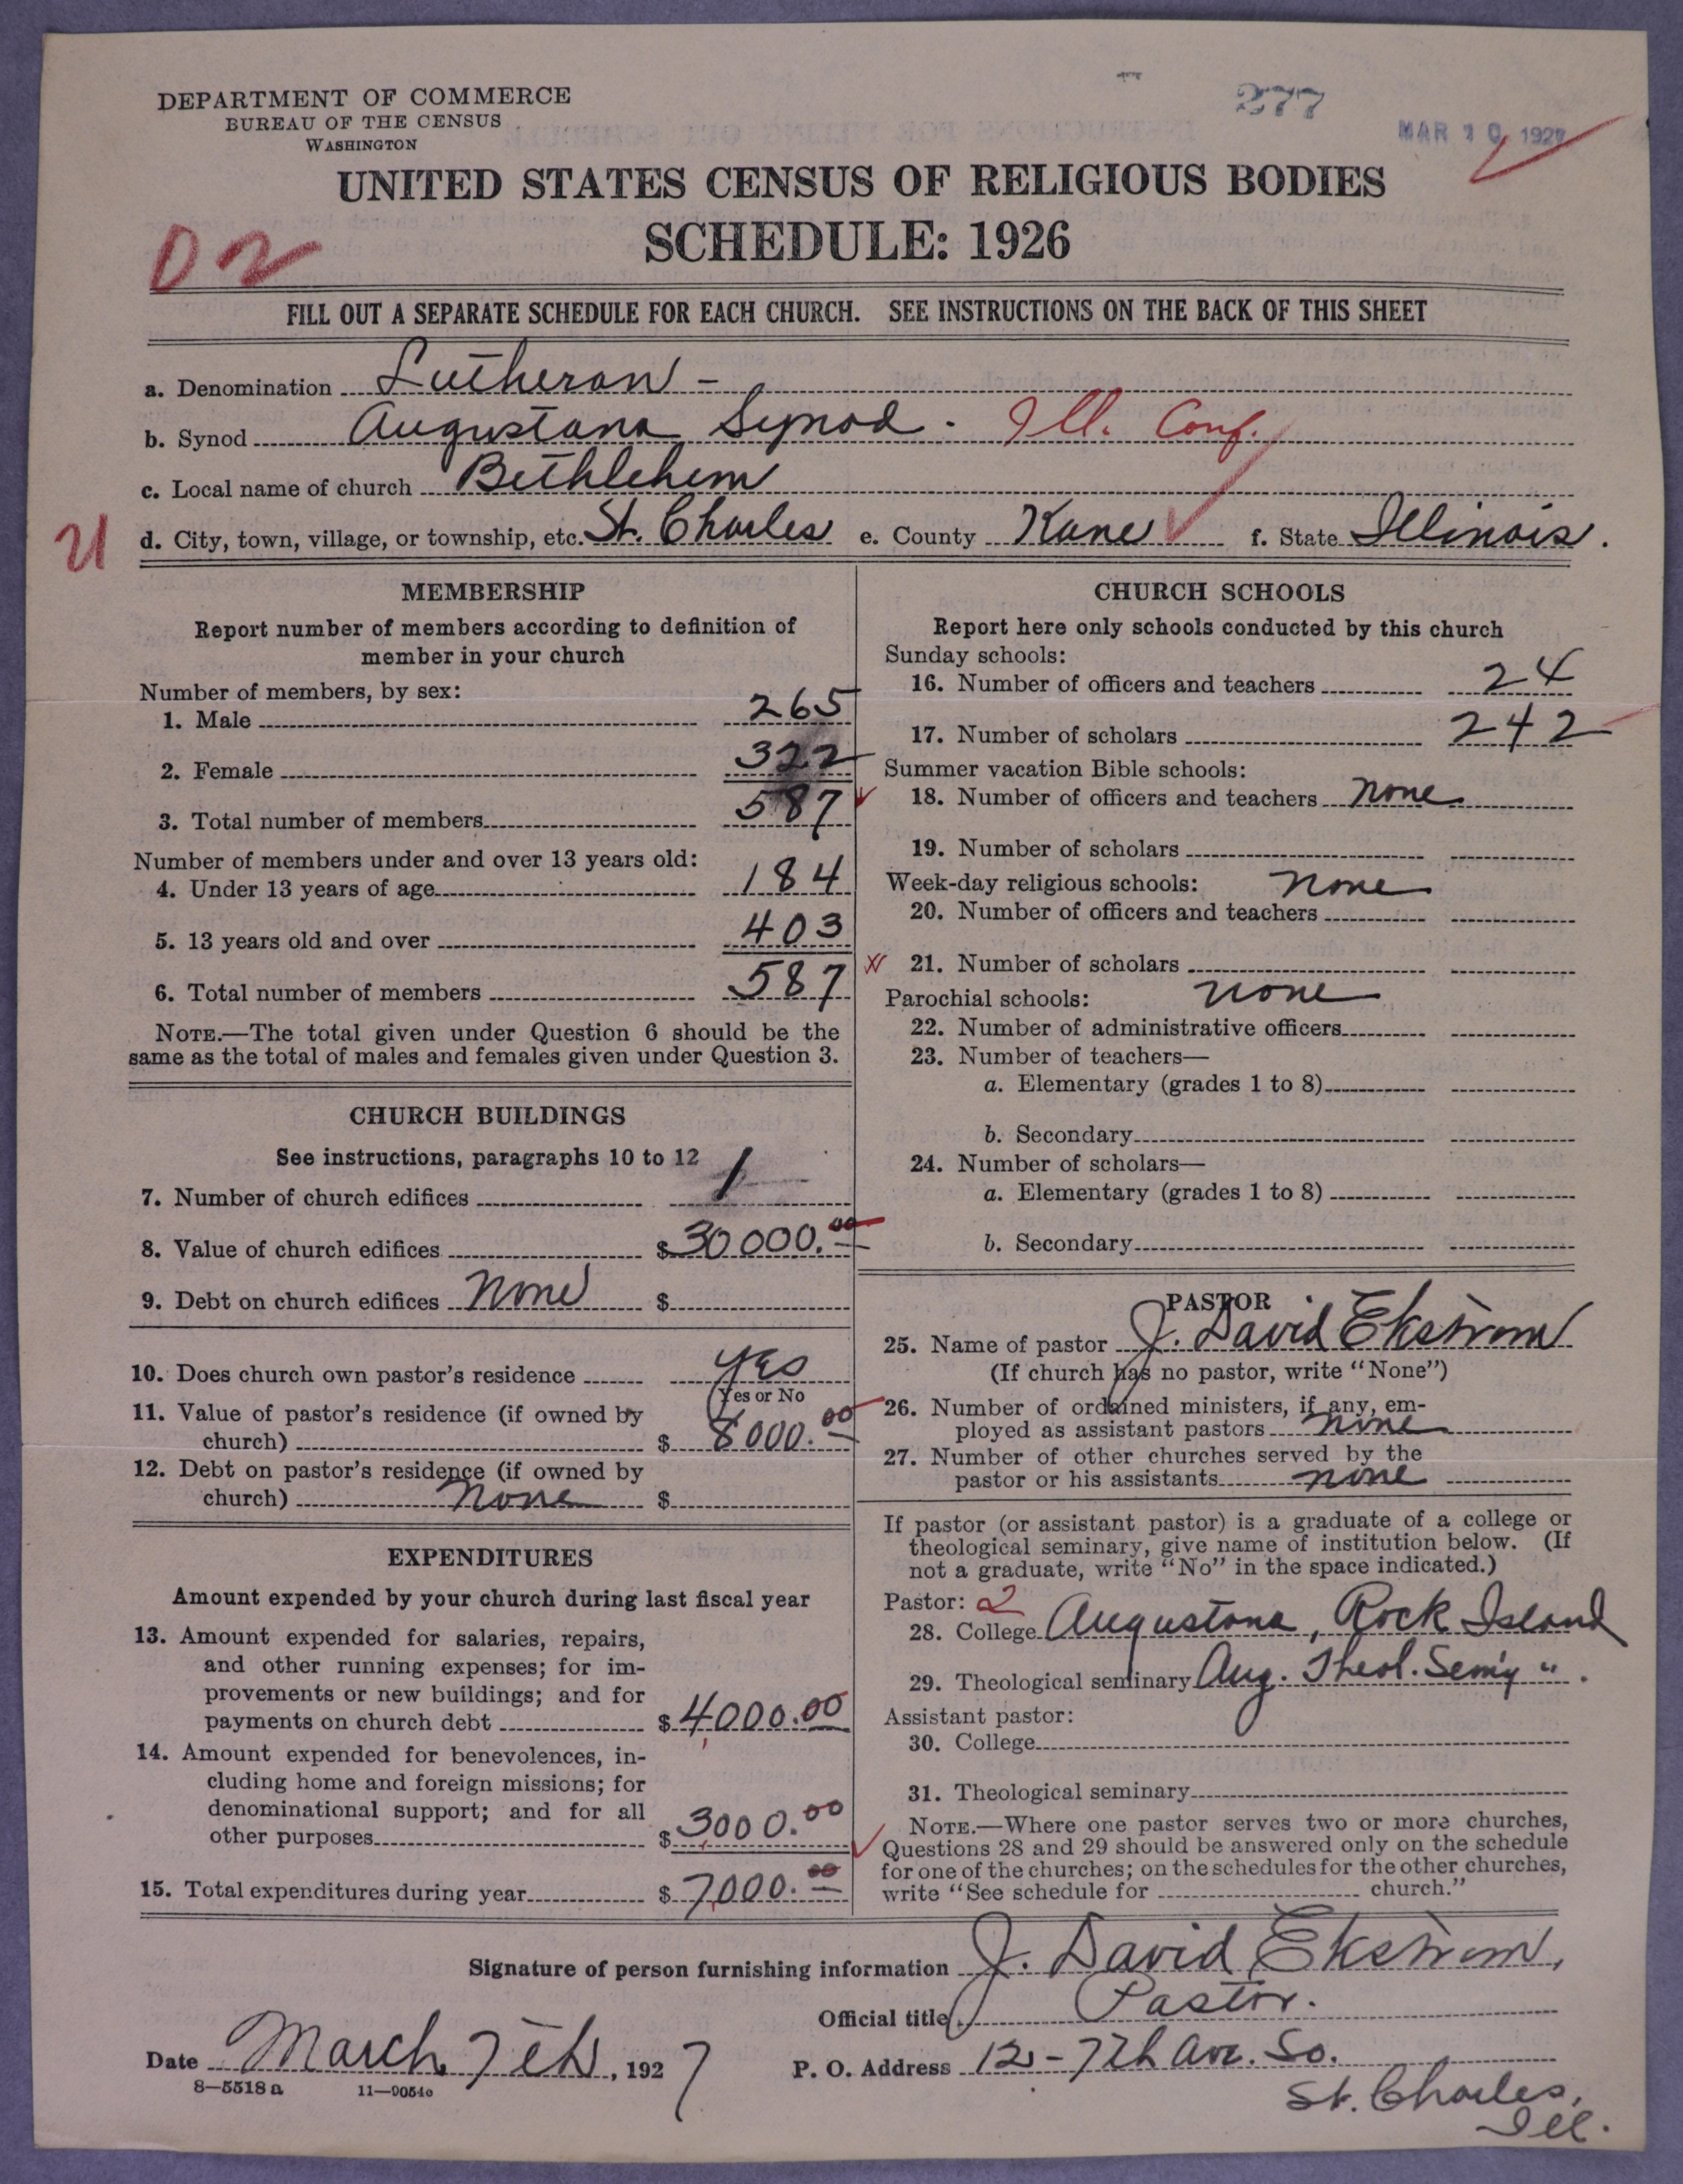 DEPARTMENT OF COMMERCE
BUREAU OF THE CENSUS
WASHINGTON
277
MAR 10 1927
UNITED STATES CENSUS OF RELIGIOUS BODIES
SCHEDULE: 1926
02
FILL OUT A SEPARATE SCHEDULE FOR EACH CHURCH. SEE INSTRUCTIONS ON THE BACK OF THIS SHEET
a. Denomination Lutheran -
b. Synod Augustana Synod. Ill. Conf.
c. Local name of church Bethlehem
U d. City, town, village, or township, etc. St. Charles e. County Kane f. State Illinois.
MEMBERSHIP
Report number of members according to definition of
member in your church
Number of members, by sex:
1. Male 265
2. Female 322
3. Total number of members 587
Number of members under and over 13 years old:
4. Under 13 years of age 184
5. 13 years old and over 403
6. Total number of members 587
NOTE.—The total given under Question 6 should be the
same as the total of males and females given under Question 3.
CHURCH BUILDINGS
See instructions, paragraphs 10 to 12
7. Number of church edifices 1
8. Value of church edifices $30000.00
9. Debt on church edifices None $
10. Does church own pastor's residence yes
Yes or No
11. Value of pastor's residence (if owned by
church) $ 8000.00
12. Debt on pastor's residence (if owned by
church) none $
EXPENDITURES
Amount expended by your church during last fiscal year
13. Amount expended for salaries, repairs,
and other running expenses; for im-
provements or new buildings; and for
payments on church debt $4000.00
14. Amount expended for benevolences, in-
cluding home and foreign missions; for
denominational support; and for all
other purposes $3000.00
15. Total expenditures during year $7000.00
CHURCH SCHOOLS
Report here only schools conducted by this church
Sunday schools:
16. Number of officers and teachers 24
17. Number of scholars 242
Summer vacation Bible schools:
18. Number of officers and teachers none
19. Number of scholars
Week-day religious schools: none
20. Number of officers and teachers
21. Number of scholars
Parochial schools: none
22. Number of administrative officers
23. Number of teachers—
a. Elementary (grades 1 to 8)
b. Secondary
24. Number of scholars—
a. Elementary (grades 1 to 8)
b. Secondary
PASTOR
25. Name of pastor J. David Ekstrom
(If church has no pastor, write "None")
26. Number of ordained ministers, if any, em-
ployed as assistant pastors none
27. Number of other churches served by the
pastor or his assistants none
If pastor (or assistant pastor) is a graduate of a college or
theological seminary, give name of institution below. (If
not a graduate, write "No" in the space indicated.)
Pastor: 2
28. College Augustana, Rock Island
29. Theological seminary Aug. Theol. Sem'y " .
Assistant pastor:
30. College
31. Theological seminary
NOTE.—Where one pastor serves two or more churches,
Questions 28 and 29 should be answered only on the schedule
for one of the churches; on the schedules for the other churches,
write "See schedule for church."
Signature of person furnishing information J. David Ekstrom,
Official title Pastor.
Date March 7th, 1927 P. O. Address 12-7th Ave. So.
8—5518a 11—9054c St. Charles,
Ill.